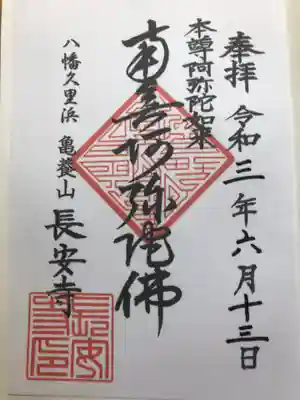 奉拝 令和三年六月十三日
本尊阿弥陀如来
南無阿弥陀佛
八幡久里浜 亀養山 長安寺